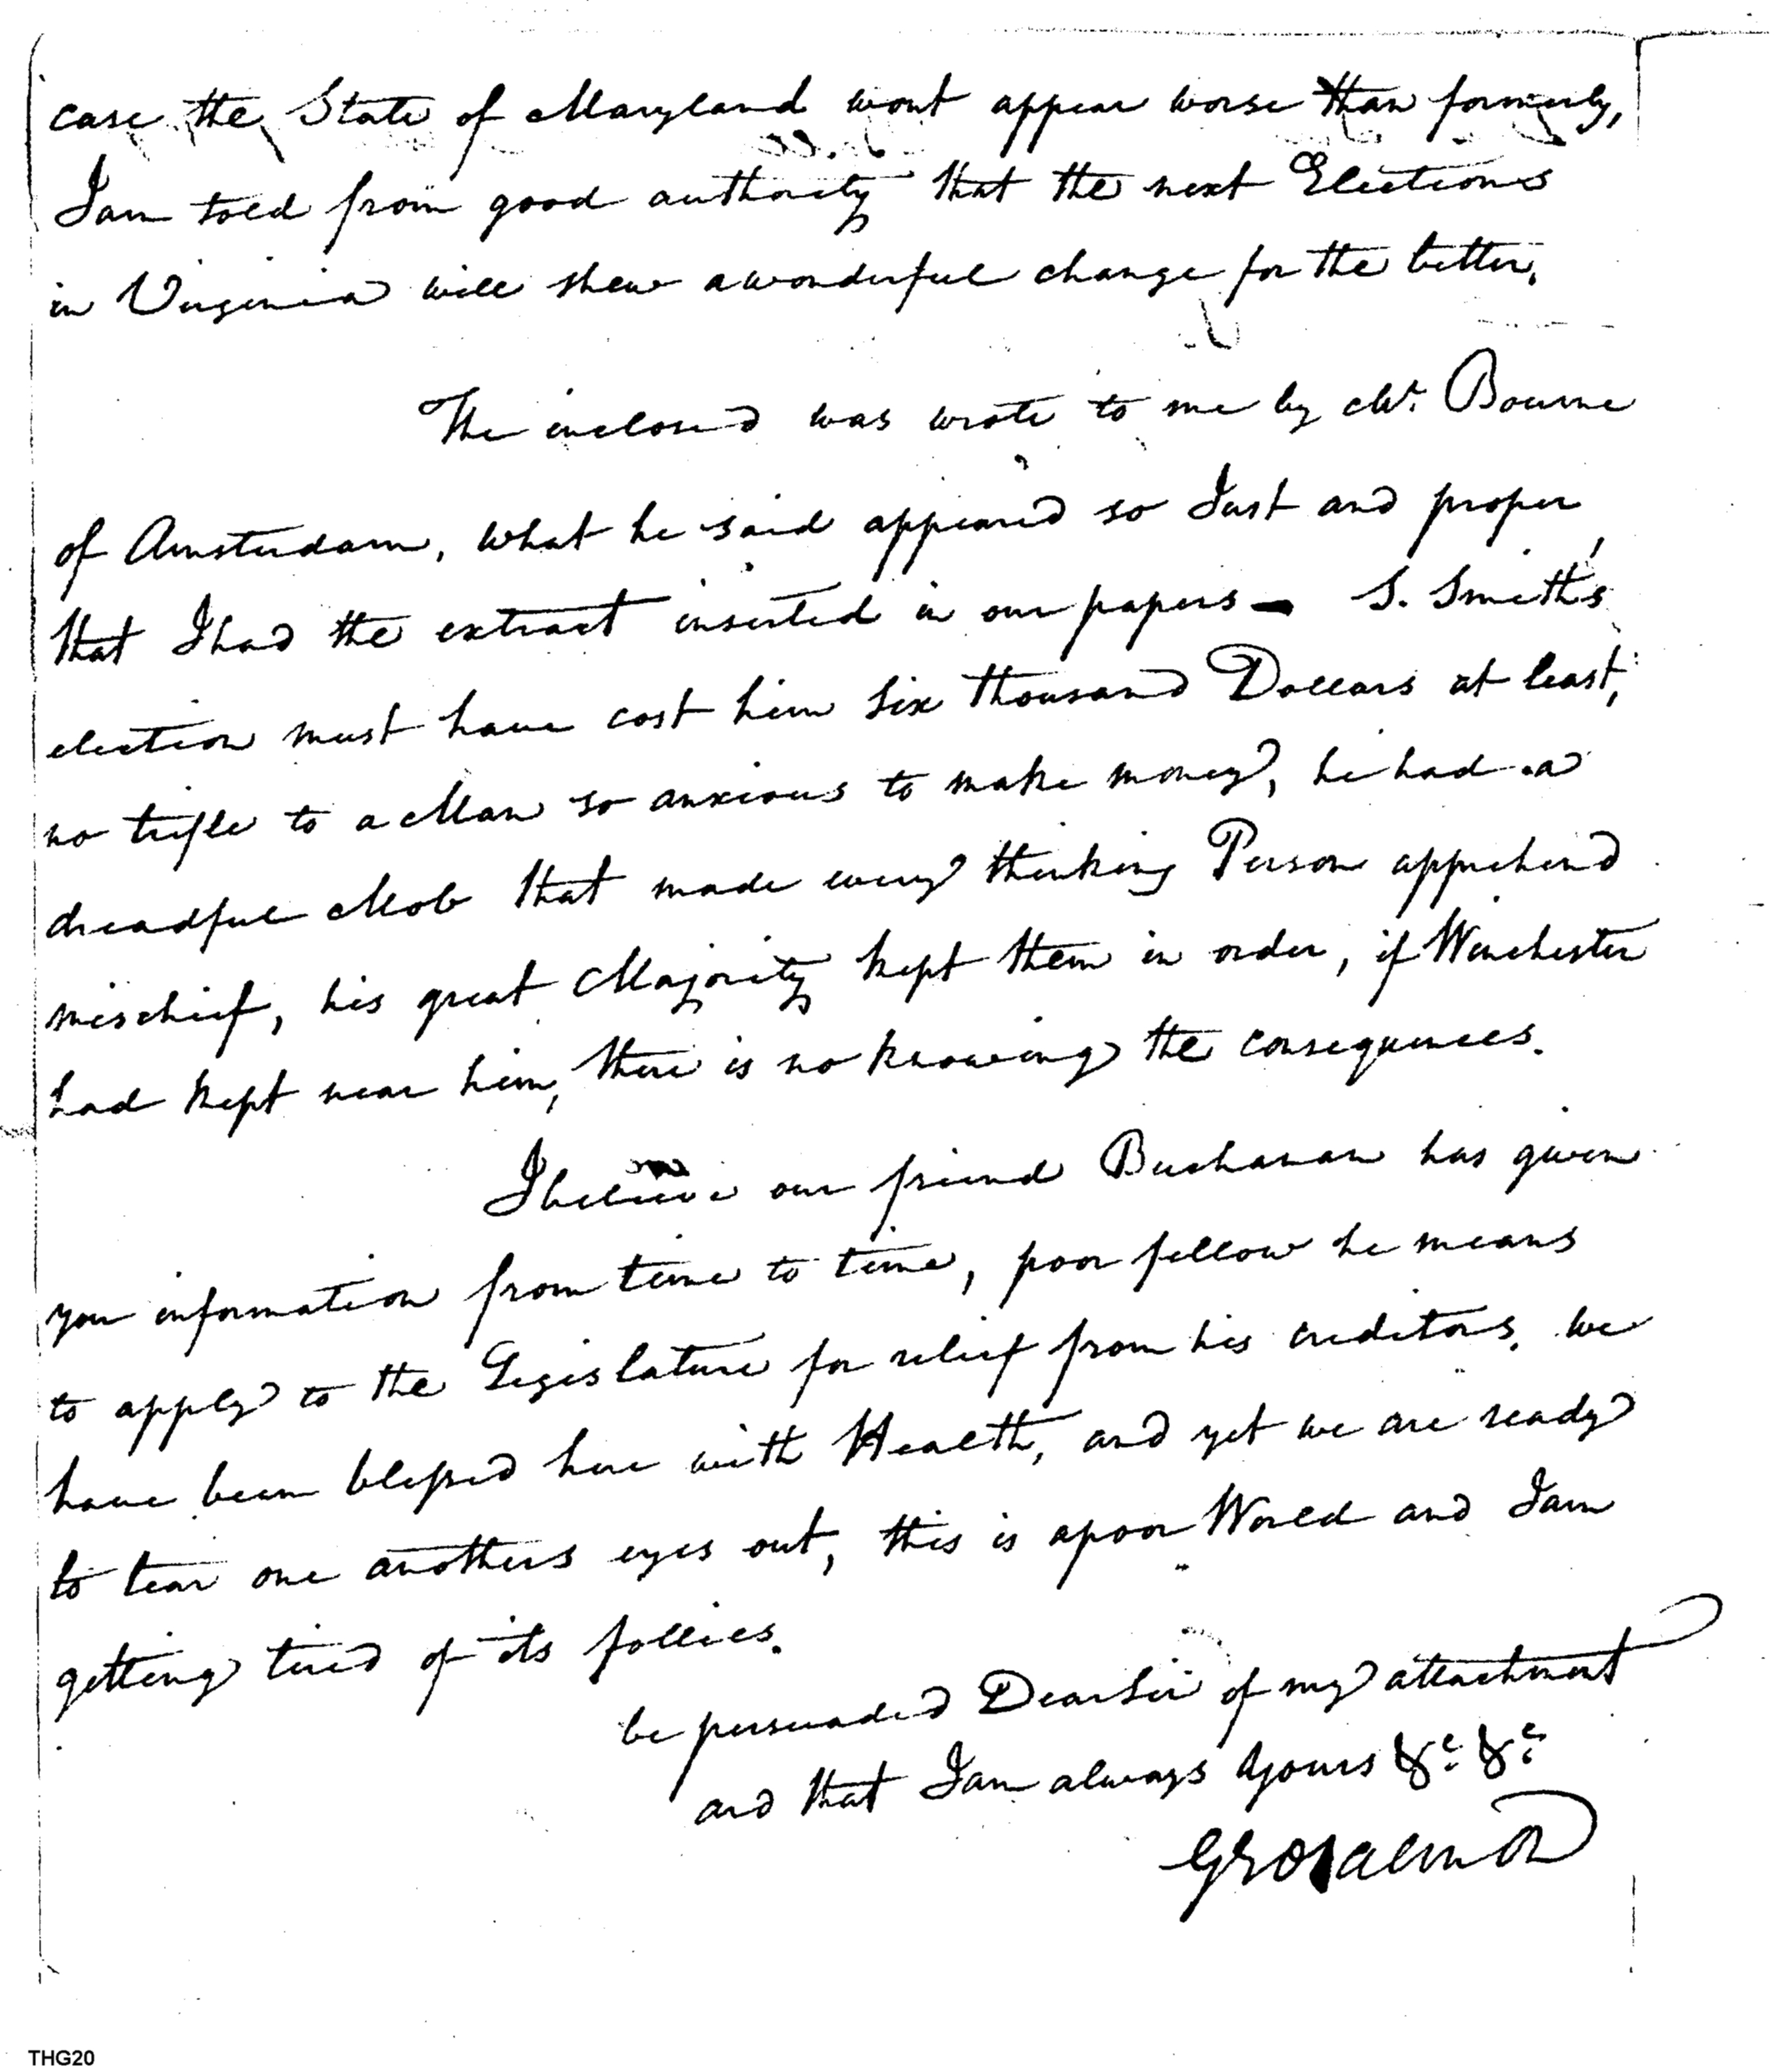 case the State of Maryland wont appear worse than formerly,
I am told from good authority that the next Elections
in Virginia will shew a wonderful change for the better.
The inclosed was wrote to me by Mr. Bourne
of Amsterdam, what he said appeared so Just and proper,
that I had the extract inserted in our papers — S. Smith's
election must have cost him Six thousand Dollars at least,
no trifle to a Man so anxious to make money, he had a
dreadful Mob that made every thinking Person apprehend
mischief, his great Majority kept them in order, if Winchester
had kept near him, there is no knowing the consequences.
I believe our friend Buchanan has given
you information from time to time, poor fellow he means
to apply to the Legislature for relief from his creditors. we
have been blessed here with Health, and yet we are ready
to tear one anothers eyes out, this is a poor World and I am
getting tired of its follies.
be persuaded Dear Sir of my attachment
and that I am always Yours &c. &c.
THG20